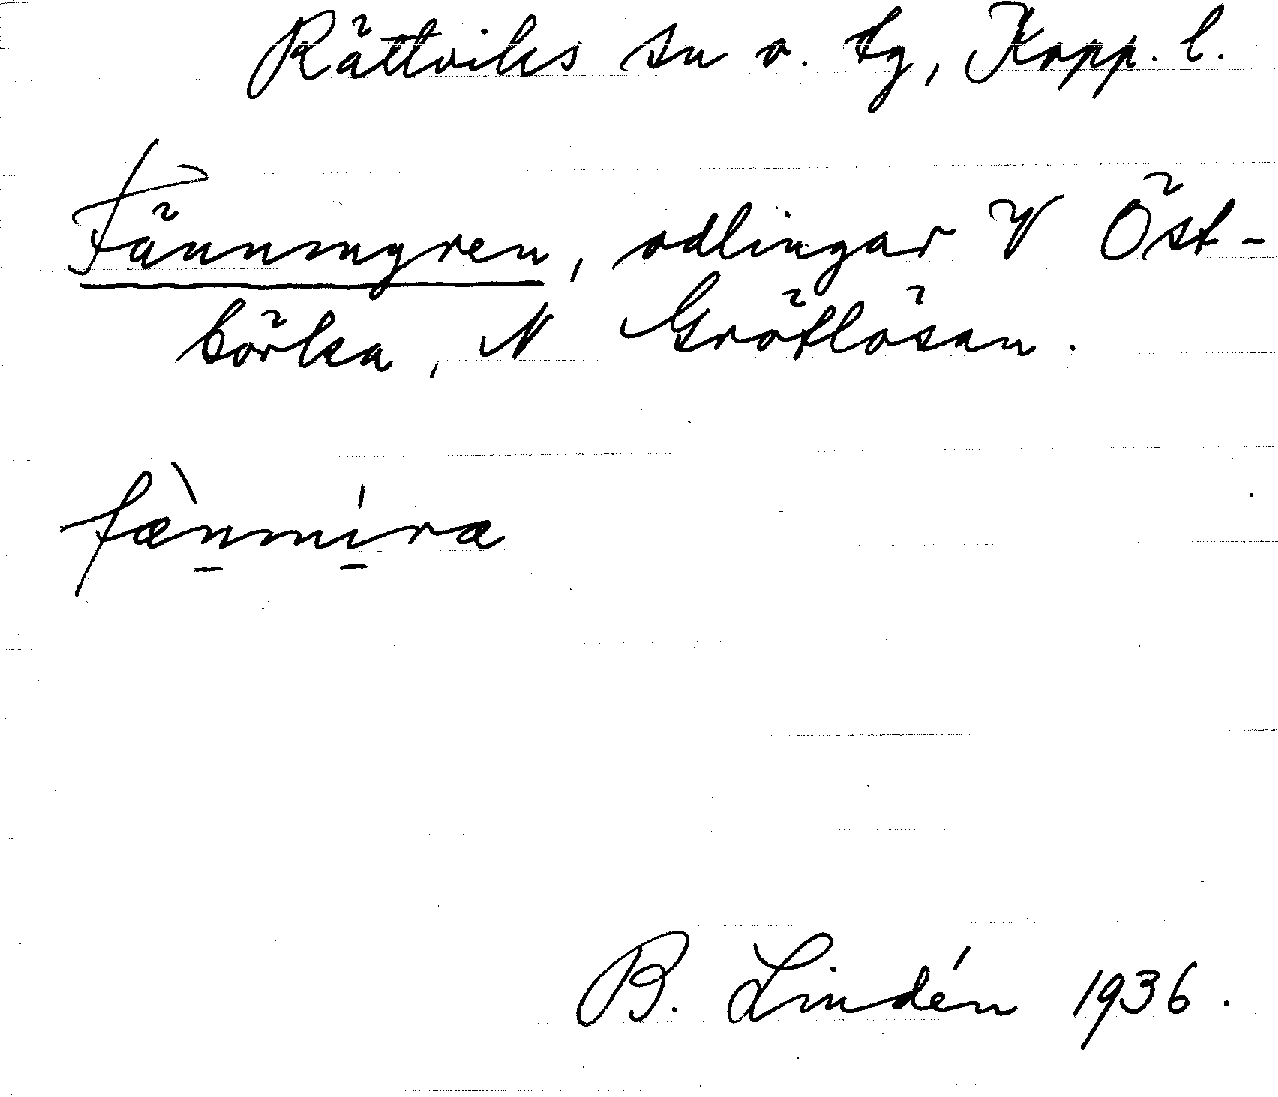 Rättviks sn o. tg, Kopp. l.
Fännmyren, odlingar V Öst-
börka, N Gröflösan.
fæ̀nmíra
B. Lindén 1936.